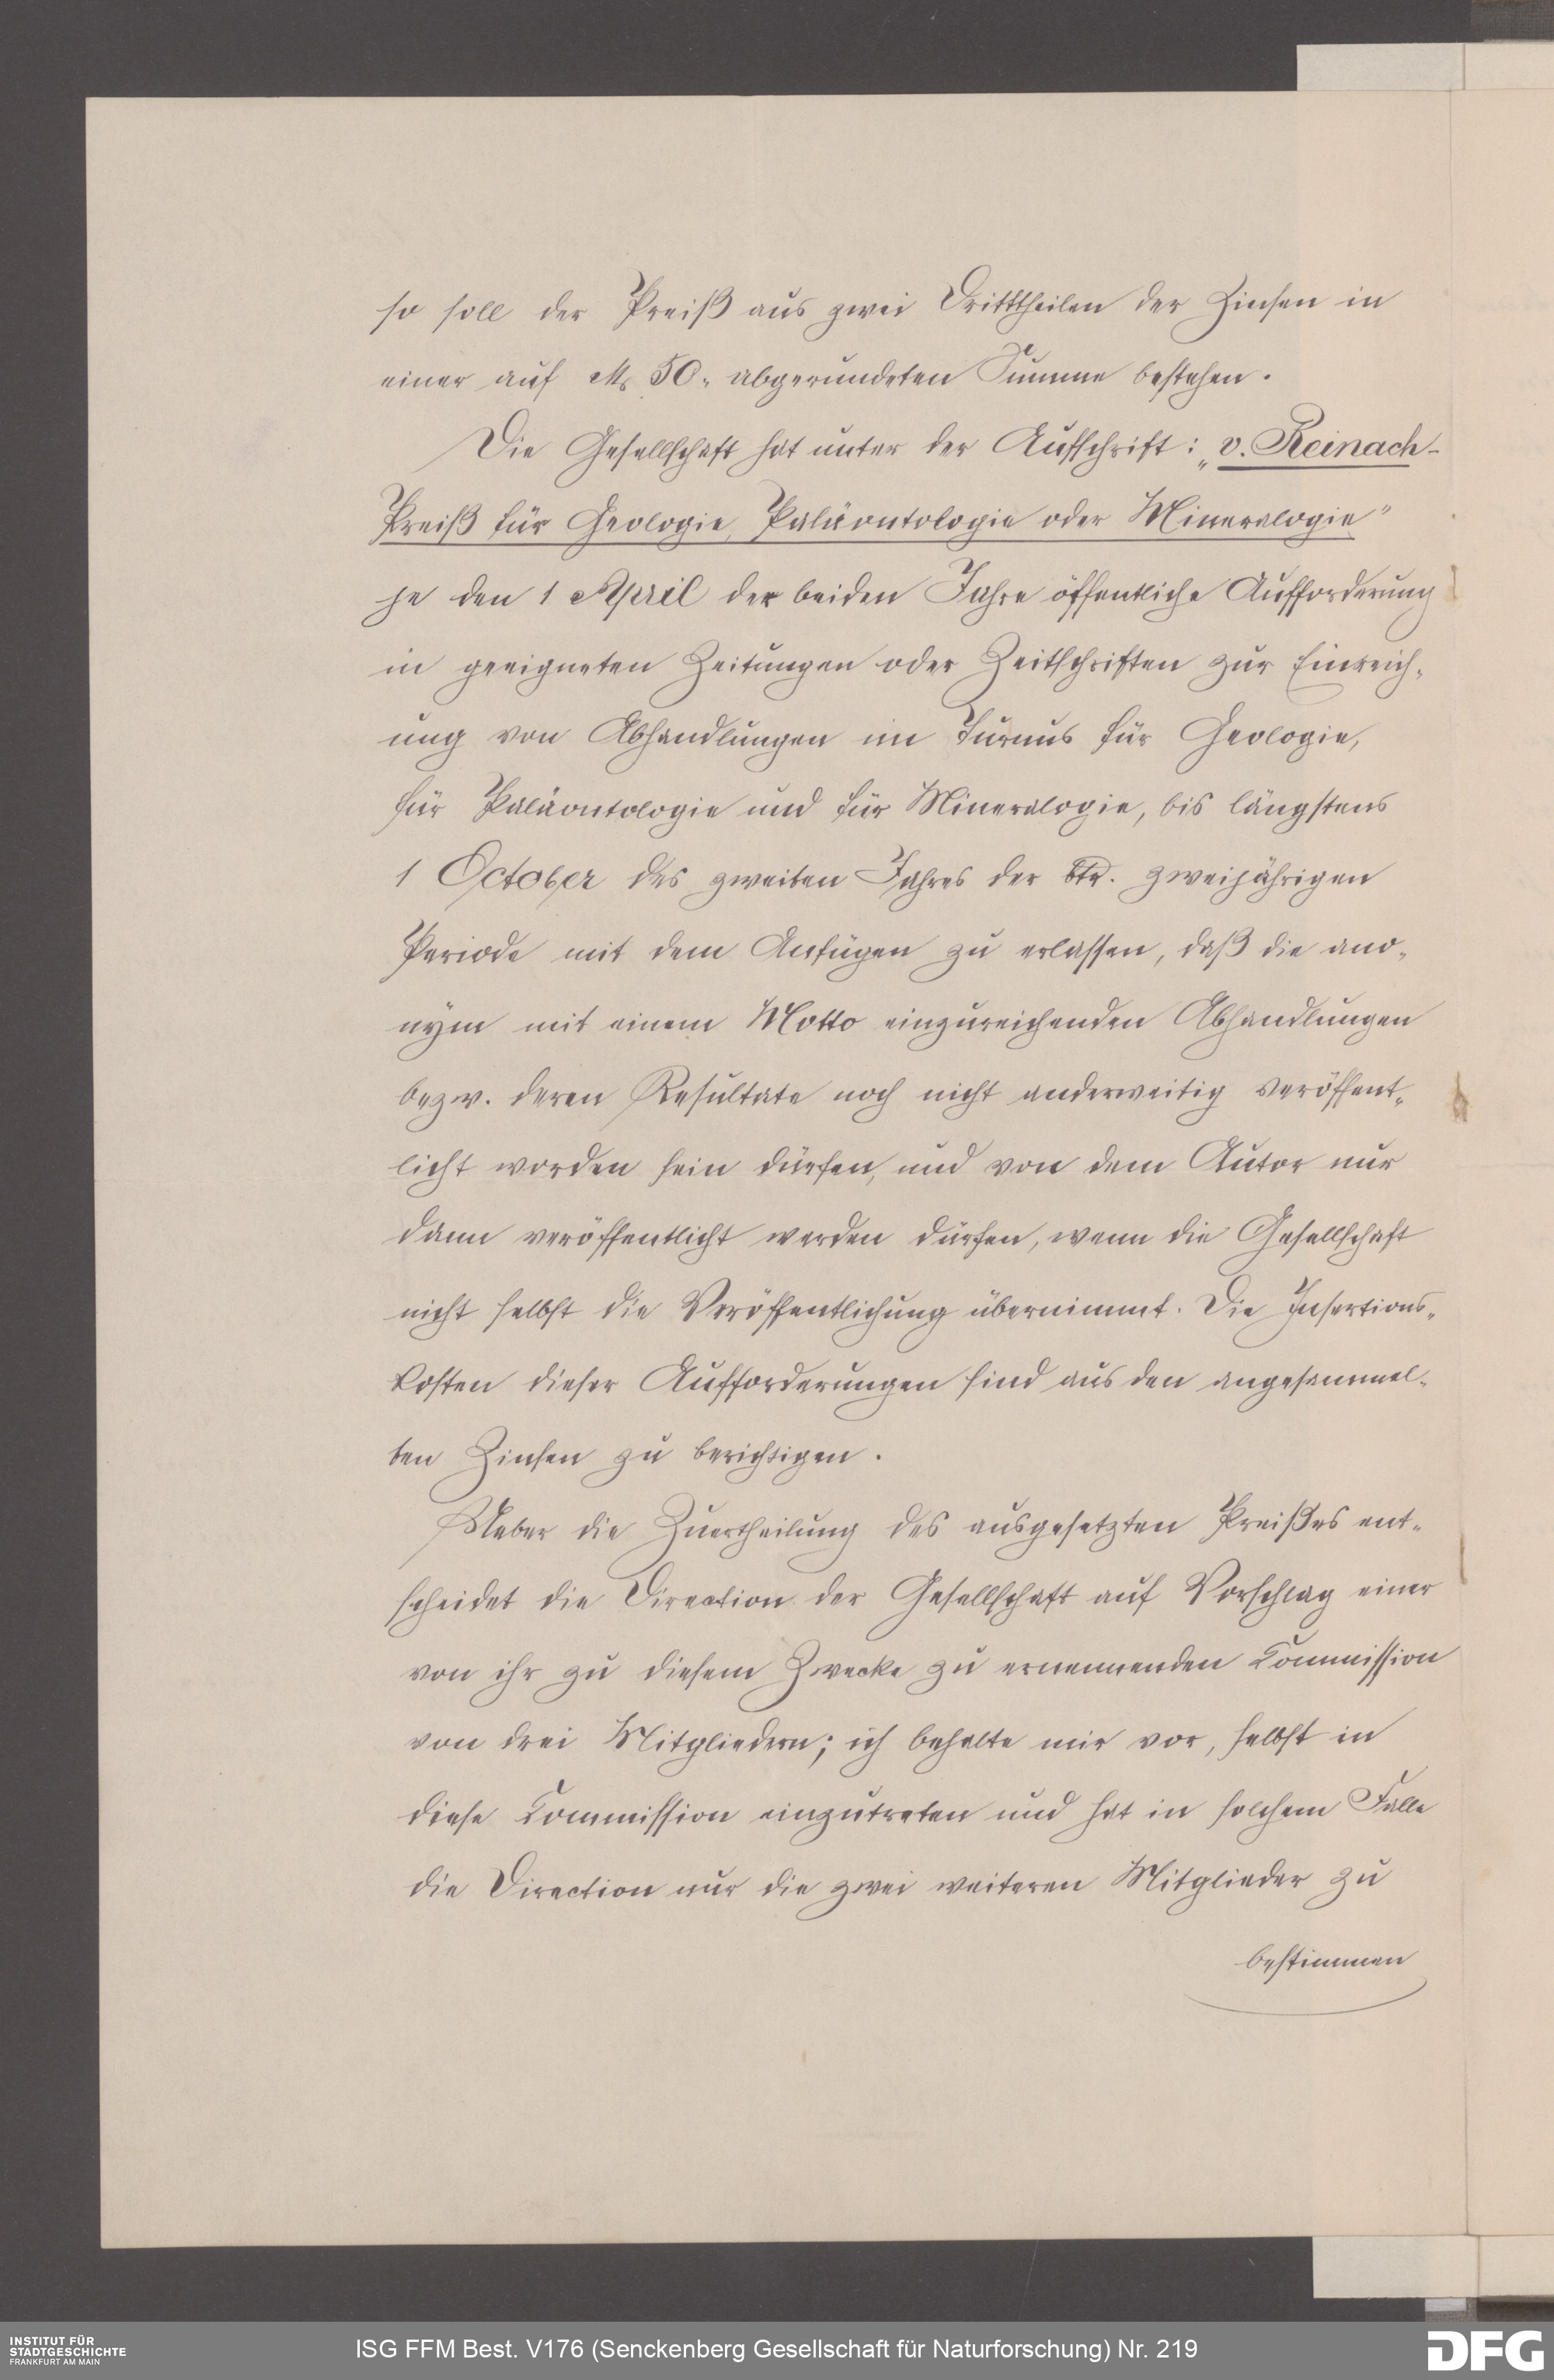 so soll der Preiß aus zwei Dritttheilen der Zinsen in
einer auf M 50.- abgerundeten Summe bestehen.
Die Gesellschaft hat unter der Aufschrift: „v. Reinach-
Preiß für Geologie, Paläontologie oder Mineralogie"
je den 1 April der beiden Jahre öffentliche Aufforderung
in geeigneten Zeitungen oder Zeitschriften zur Einreich-
ung von Abhandlungen im Turnus für Geologie,
für Paläontologie und für Mineralogie, bis längstens
1 October des zweiten Jahres der btr. zweijährigen
Periode mit dem Anfügen zu erlassen, daß die ano-
nym mit einem Motto einzureichenden Abhandlungen
bezw. deren Resultate noch nicht anderweitig veröffent-
licht worden sein dürfen, und von dem Autor nur
dann veröffentlicht werden dürfen, wenn die Gesellschaft
nicht selbst die Veröffentlichung übernimmt. Die Insertions-
kosten dieser Aufforderungen sind aus den angesammel-
ten Zinsen zu berichtigen.
Ueber die Zuertheilung des ausgesetzten Preißes ent-
scheidet die Direction der Gesellschaft auf Vorschlag einer
von ihr zu diesem Zwecke zu ernennenden Commission
von drei Mitgliedern; ich behalte mir vor, selbst in
diese Commission einzutreten und hat in solchem Falle
die Direction nur die zwei weiteren Mitglieder zu
bestimmen
INSTITUT FÜR
STADTGESCHICHTE
FRANKFURT AM MAIN
ISG FFM Best. V176 (Senckenberg Gesellschaft für Naturforschung) Nr. 219
DFG